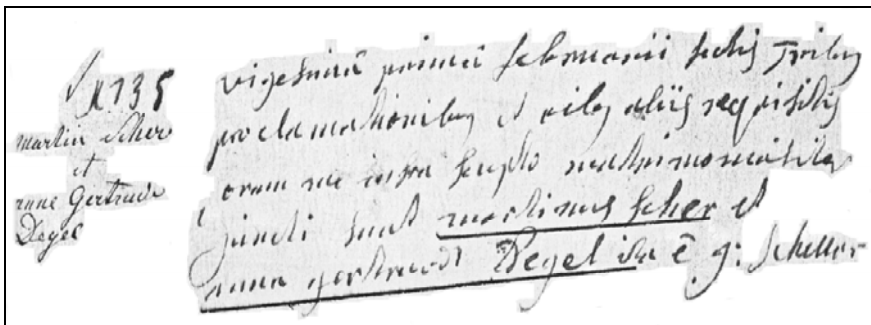 1735
martin Scher
et
anne Gertrude
Degel
vigesimâ primâ februarii factis tribq
proclamationibq et oibq aliis requisitis
coram me infra scripto matrimonialiter
juncti sunt martinus Scher et
anna gertraudt Degel ita ê g: Schiller